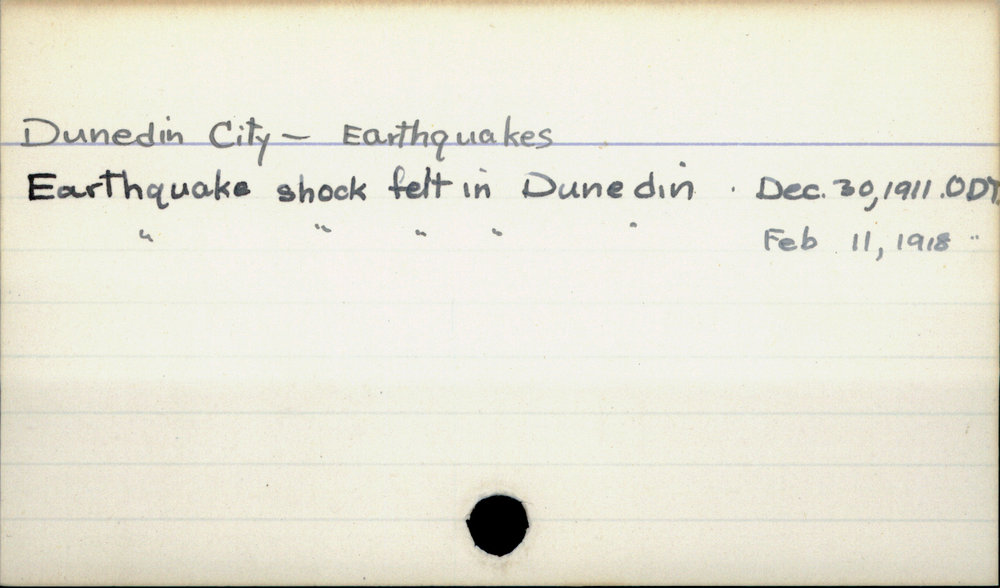 Dunedin City – Earthquakes
Earthquake shock felt in Dunedin . Dec. 30, 1911. ODT.
" " " " " Feb 11, 1918 "